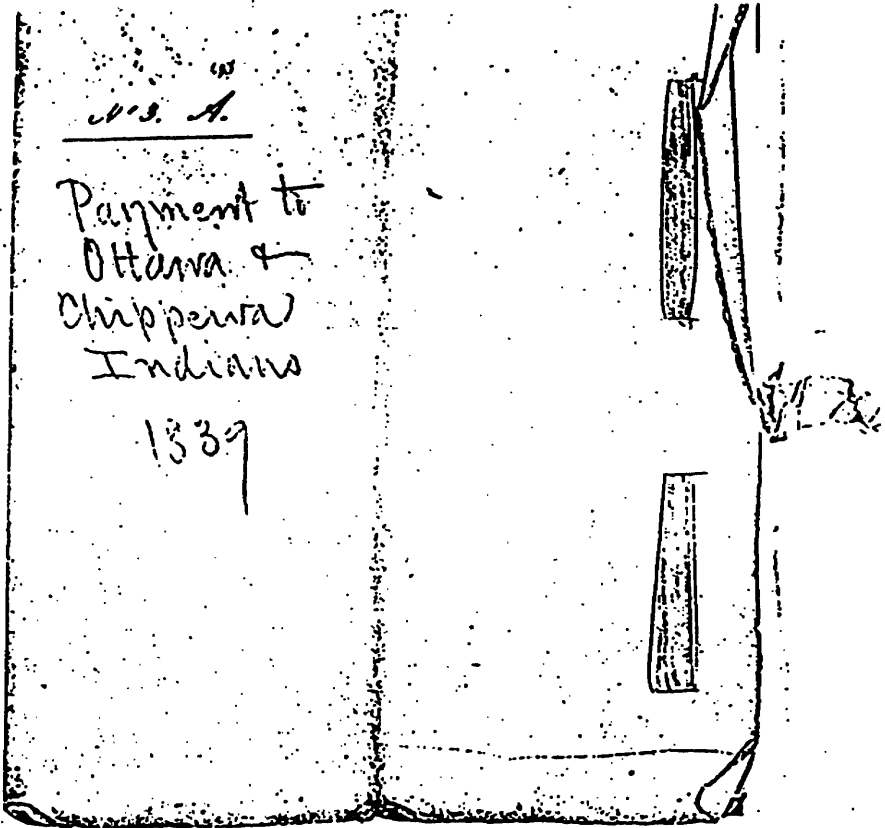 No 3. A.
Payment to
Ottawa &
Chippewa
Indians
1839